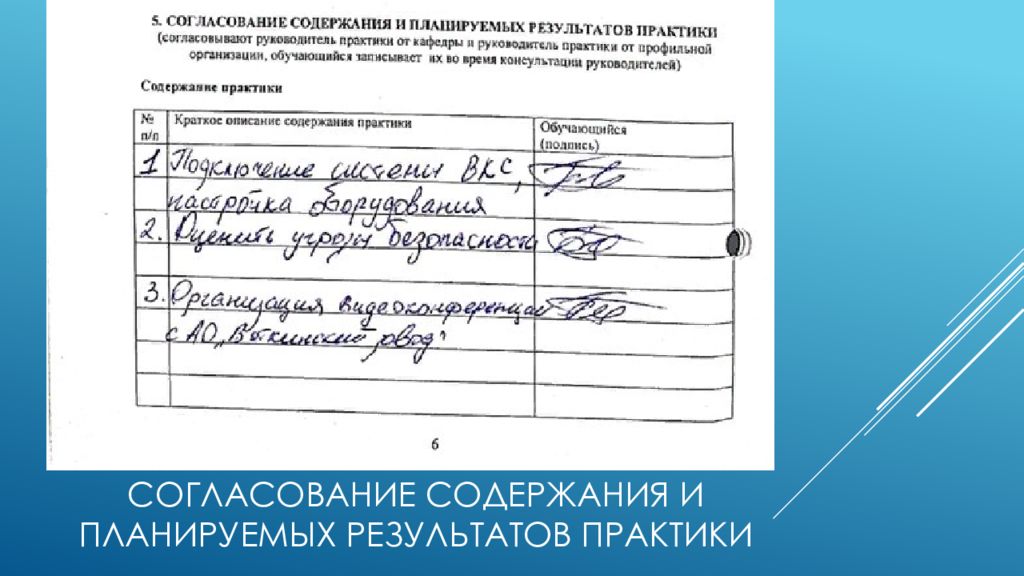 5. СОГЛАСОВАНИЕ СОДЕРЖАНИЯ И ПЛАНИРУЕМЫХ РЕЗУЛЬТАТОВ ПРАКТИКИ
(согласовывают руководитель практики от кафедры и руководитель практики от профильной
организации, обучающийся записывает их во время консультации руководителей)
Содержание практики
№ п/п
Краткое описание содержания практики
Обучающийся (подпись)
1 Подключение системы ВКС,
настройка оборудования
2. Оценить угрозы безопасности
3. Организация видеоконференции
с АО „Воткинский завод"
6
СОГЛАСОВАНИЕ СОДЕРЖАНИЯ И
ПЛАНИРУЕМЫХ РЕЗУЛЬТАТОВ ПРАКТИКИ